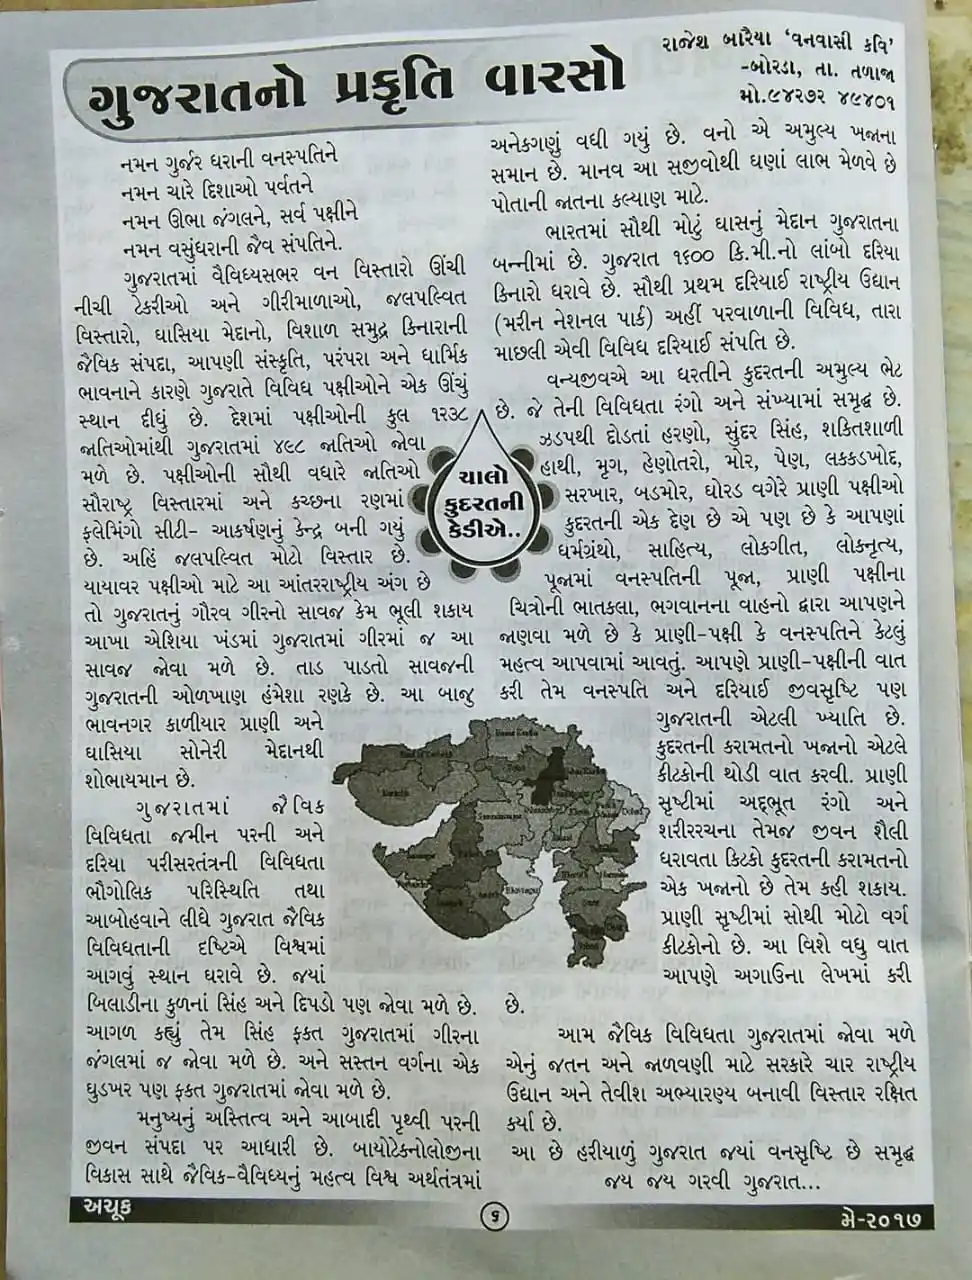 ગુજરાતનો પ્રકૃતિ વારસો
રાજેશ બારૈયા ‘વનવાસી કવિ’
-બોરડા, તા. તળાજા
મો.૯૪૨૭૨ ૪૯૪૦૧
નમન ગુર્જર ધરાની વનસ્પતિને
નમન ચારે દિશાઓ પર્વતને
નમન ઊભા જંગલને, સર્વ પક્ષીને
નમન વસુંધરાની જૈવ સંપતિને.
ગુજરાતમાં વૈવિધ્યસભર વન વિસ્તારો ઊંચી
નીચી ટેકરીઓ અને ગીરીમાળાઓ, જલપલ્વિત
વિસ્તારો, ઘાસિયા મેદાનો, વિશાળ સમુદ્ર કિનારાની
જૈવિક સંપદા, આપણી સંસ્કૃતિ, પરંપરા અને ધાર્મિક
ભાવનાને કારણે ગુજરાતે વિવિધ પક્ષીઓને એક ઊંચું
સ્થાન દીધું છે. દેશમાં પક્ષીઓની કુલ ૧૨૩૮
જાતિઓમાંથી ગુજરાતમાં ૪૯૮ જાતિઓ જોવા
મળે છે. પક્ષીઓની સૌથી વધારે જાતિઓ
સૌરાષ્ટ્ર વિસ્તારમાં અને કચ્છના રણમાં
ફલેમિંગો સીટી- આકર્ષણનું કેન્દ્ર બની ગયું
છે. અહિં જલપલ્વિત મોટો વિસ્તાર છે.
યાયાવર પક્ષીઓ માટે આ આંતરરાષ્ટ્રીય અંગ છે
તો ગુજરાતનું ગૌરવ ગીરનો સાવજ કેમ ભૂલી શકાય
આખા એશિયા ખંડમાં ગુજરાતમાં ગીરમાં જ આ
સાવજ જોવા મળે છે. તાડ પાડતો સાવજની
ગુજરાતની ઓળખાણ હંમેશા રણકે છે. આ બાજુ
ભાવનગર કાળીયાર પ્રાણી અને
ઘાસિયા સોનેરી મેદાનથી
શોભાયમાન છે.
ગુજરાતમાં જૈવિક
વિવિધતા જમીન પરની અને
દરિયા પરીસરતંત્રની વિવિધતા
ભૌગોલિક પરિસ્થિતિ તથા
આબોહવાને લીધે ગુજરાત જૈવિક
વિવિધતાની દૃષ્ટિએ વિશ્વમાં
આગવું સ્થાન ધરાવે છે. જયાં
બિલાડીના કુળનાં સિંહ અને દિપડો પણ જોવા મળે છે.
આગળ કહ્યું તેમ સિંહ ફકત ગુજરાતમાં ગીરના
જંગલમાં જ જોવા મળે છે. અને સસ્તન વર્ગના એક
ઘુડખર પણ ફકત ગુજરાતમાં જોવા મળે છે.
મનુષ્યનું અસ્તિત્વ અને આબાદી પૃથ્વી પરની
જીવન સંપદા પર આધારી છે. બાયોટેકનોલોજીના
વિકાસ સાથે જૈવિક-વૈવિધ્યનું મહત્વ વિશ્વ અર્થતંત્રમાં
અનેકગણું વધી ગયું છે. વનો એ અમુલ્ય ખજાના
સમાન છે. માનવ આ સજીવોથી ઘણાં લાભ મેળવે છે
પોતાની જાતના કલ્યાણ માટે.
ભારતમાં સૌથી મોટું ઘાસનું મેદાન ગુજરાતના
બન્નીમાં છે. ગુજરાત ૧૬૦૦ કિ.મી.નો લાંબો દરિયા
કિનારો ધરાવે છે. સૌથી પ્રથમ દરિયાઈ રાષ્ટ્રીય ઉદ્યાન
(મરીન નેશનલ પાર્ક) અહીં પરવાળાની વિવિધ, તારા
માછલી એવી વિવિધ દરિયાઈ સંપતિ છે.
વન્યજીવએ આ ધરતીને કુદરતની અમુલ્ય ભેટ
છે. જે તેની વિવિધતા રંગો અને સંખ્યામાં સમૃદ્ધ છે.
ઝડપથી દોડતાં હરણો, સુંદર સિંહ, શકિતશાળી
હાથી, મૃગ, હેણોતરો, મોર, પેણ, લકકડખોદ,
સરખાર, બડમોર, ઘોરડ વગેરે પ્રાણી પક્ષીઓ
કુદરતની એક દેણ છે એ પણ છે કે આપણાં
ધર્મગ્રંથો, સાહિત્ય, લોકગીત, લોકનૃત્ય,
પૂજામાં વનસ્પતિની પૂજા, પ્રાણી પક્ષીના
ચિત્રોની ભાતકલા, ભગવાનના વાહનો દ્વારા આપણને
જાણવા મળે છે કે પ્રાણી-પક્ષી કે વનસ્પતિને કેટલું
મહત્વ આપવામાં આવતું. આપણે પ્રાણી-પક્ષીની વાત
કરી તેમ વનસ્પતિ અને દરિયાઈ જીવસૃષ્ટિ પણ
ગુજરાતની એટલી ખ્યાતિ છે.
કુદરતની કરામતનો ખજાનો એટલે
કીટકોની થોડી વાત કરવી. પ્રાણી
સૃષ્ટિમાં અદ્દભૂત રંગો અને
શરીરરચના તેમજ જીવન શૈલી
ધરાવતા કિટકો કુદરતની કરામતનો
એક ખજાનો છે તેમ કહી શકાય.
પ્રાણી સૃષ્ટિમાં સોથી મોટો વર્ગ
કીટકોનો છે. આ વિશે વધુ વાત
આપણે અગાઉના લેખમાં કરી
છે.
આમ જૈવિક વિવિધતા ગુજરાતમાં જોવા મળે
એનું જતન અને જાળવણી માટે સરકારે ચાર રાષ્ટ્રીય
ઉદ્યાન અને તેવીશ અભ્યારણ્ય બનાવી વિસ્તાર રક્ષિત
કર્યા છે.
આ છે હરીયાળું ગુજરાત જયાં વનસૃષ્ટિ છે સમૃદ્ધ
જય જય ગરવી ગુજરાત...
ચાલો
કુદરતની
કેડીએ..
અચૂક
૬
મે-૨૦૧૭